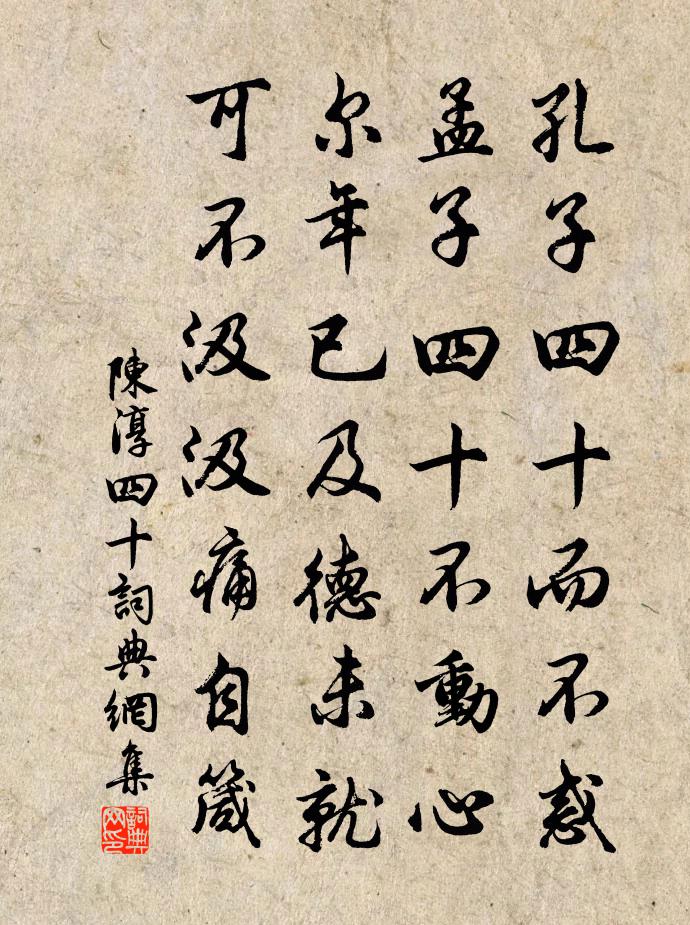 孔子四十而不惑
孟子四十不動心
尔年已及德未就
可不汲汲痛自箴
陳淳四十詞典網集
詞典网印